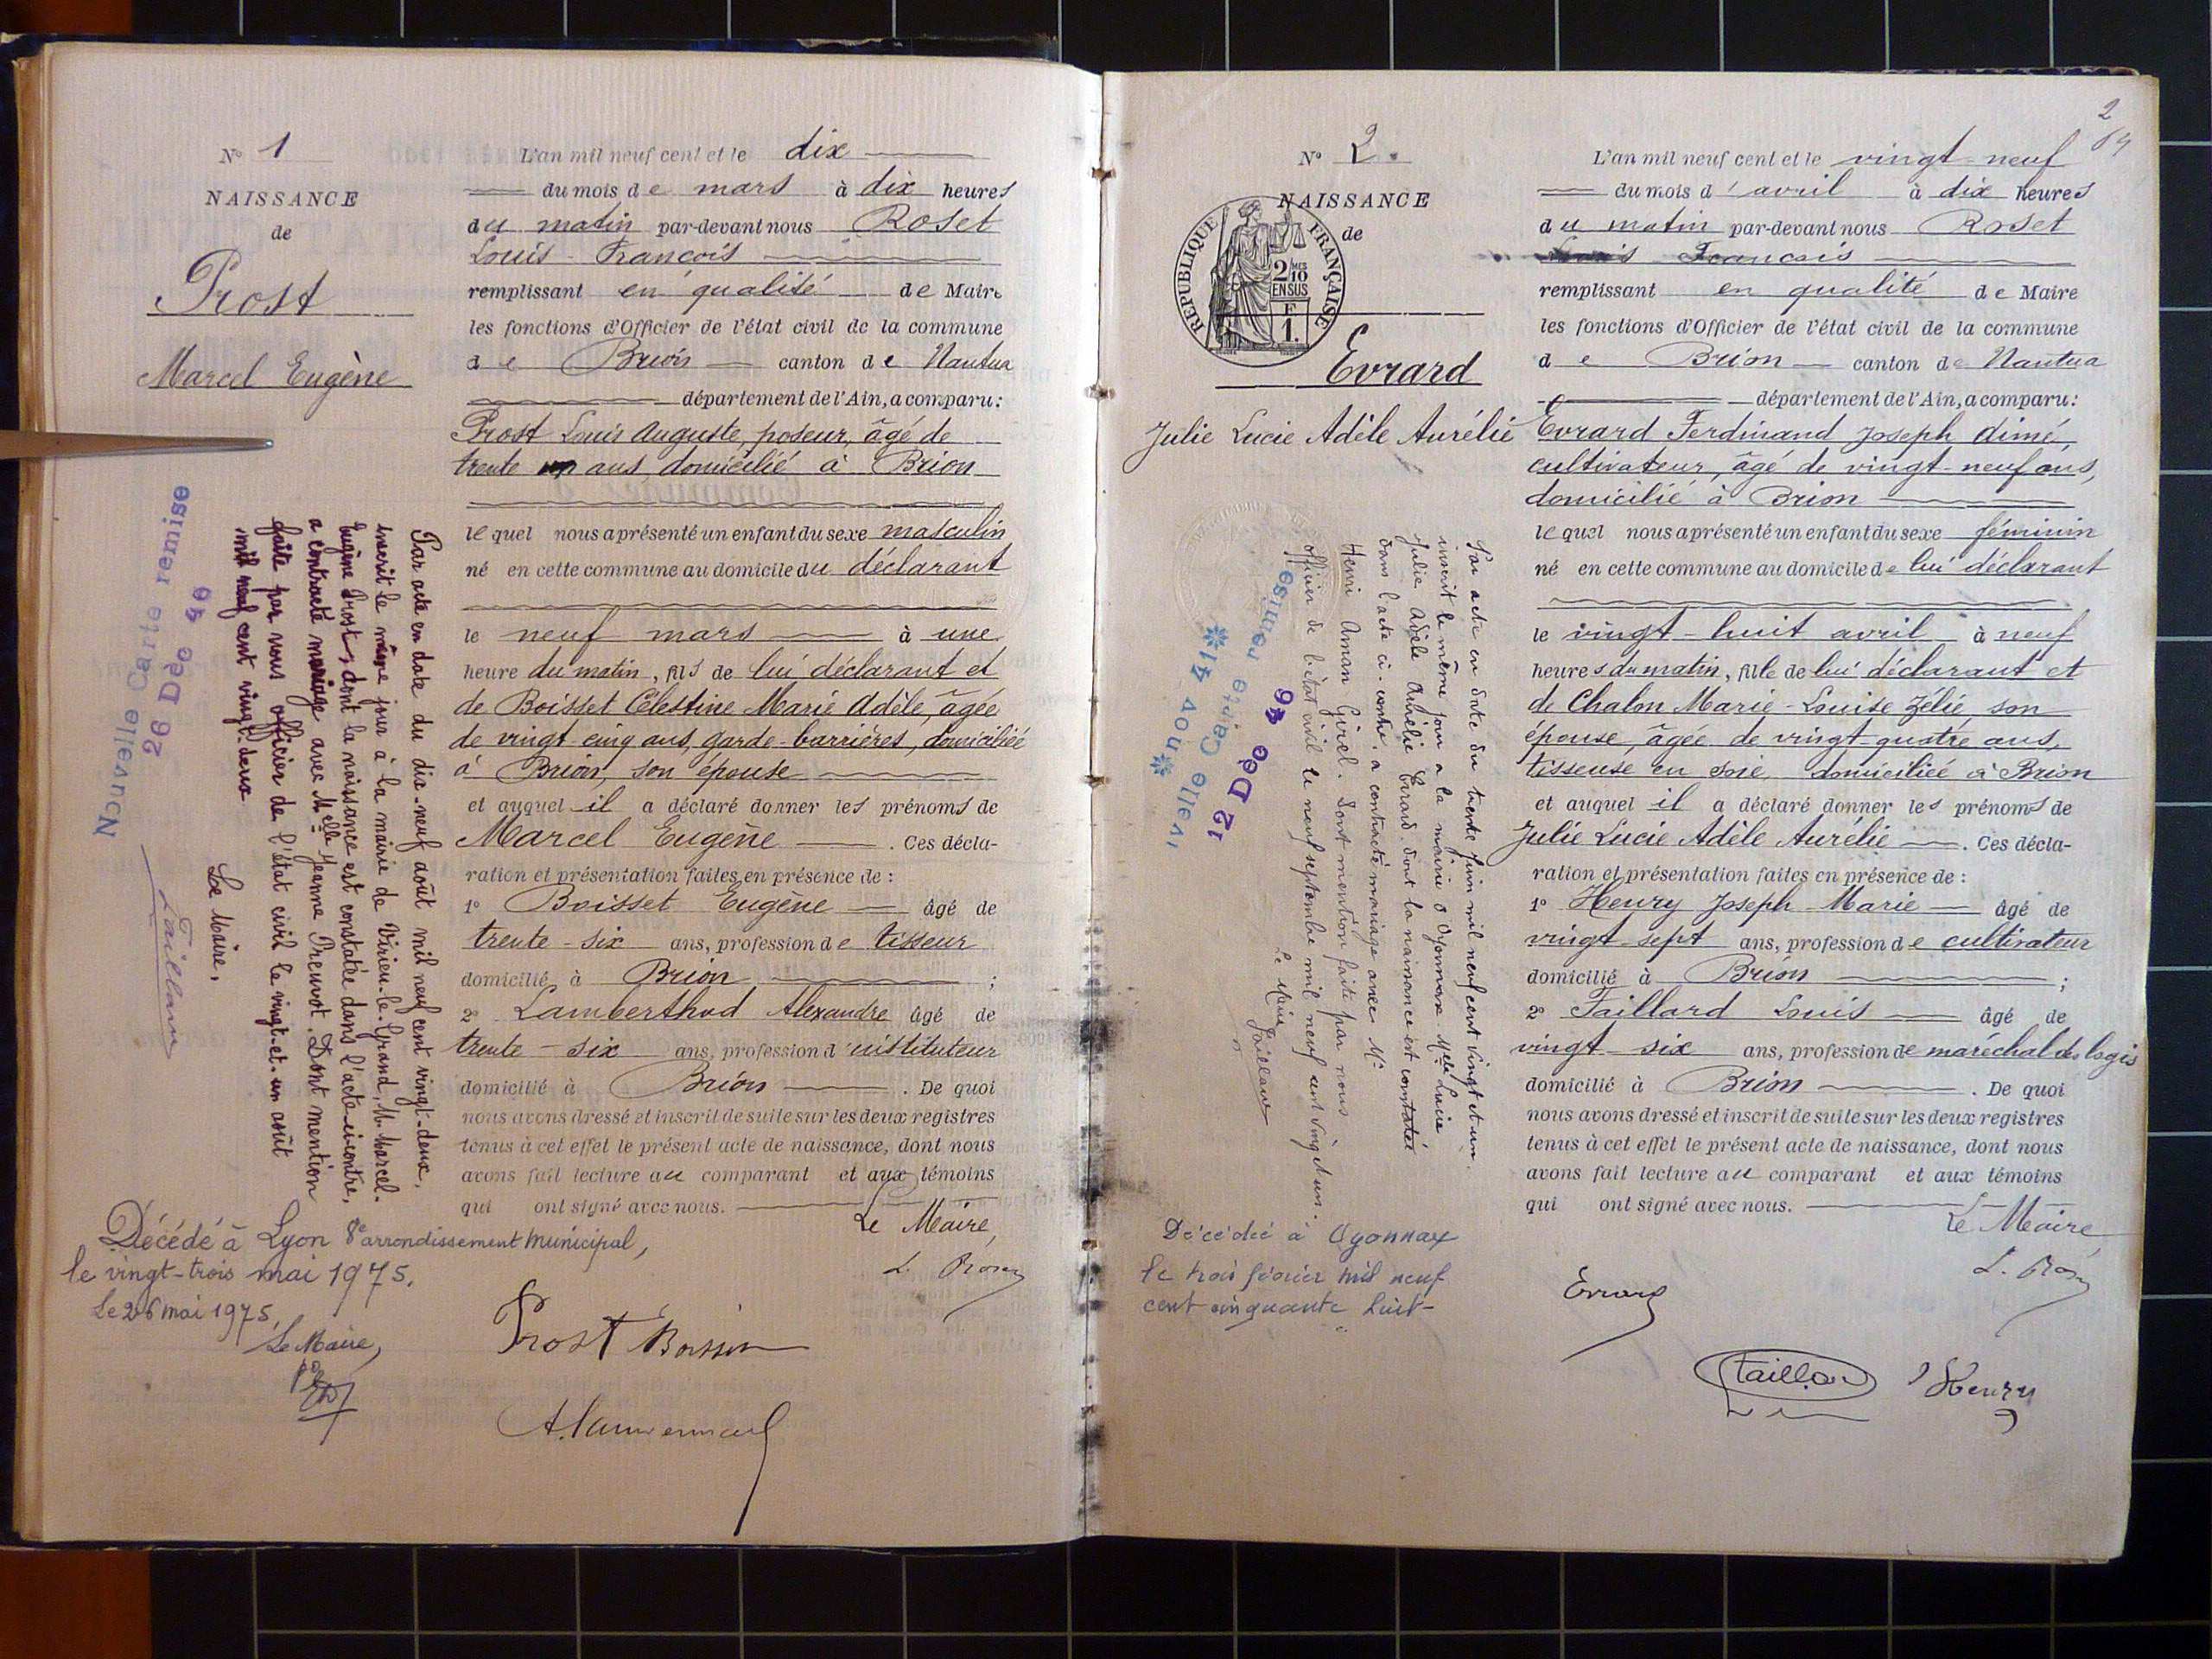 N° 1
NAISSANCE
de
Prost
Marcel Eugène
L'an mil neuf cent et le dix
du mois de mars à dix heures
du matin par-devant nous Roset
Louis-François
remplissant en qualité de Maire
les fonctions d'Officier de l'état civil de la commune
de Brion canton de Nantua
département de l'Ain, a comparu:
Prost Louis Auguste, poseur, âgé de
trente ans domicilié à Brion
lequel nous a présenté un enfant du sexe masculin
né en cette commune au domicile du déclarant
le neuf mars à une
heure du matin, fils de lui déclarant et
de Boisset Célestine Marie Adèle, âgée
de vingt-cinq ans, garde-barrières, domiciliée
à Brion, son épouse
et auquel il a déclaré donner les prénoms de
Marcel Eugène. Ces décla-
ration et présentation faites en présence de:
1° Boisset Eugène âgé de
trente-six ans, profession de tisseur
domicilié à Brion;
2° Lamberthod Alexandre âgé de
trente-six ans, profession d'instituteur
domicilié à Brion. De quoi
nous avons dressé et inscrit de suite sur les deux registres
tenus à cet effet le présent acte de naissance, dont nous
avons fait lecture au comparant et aux témoins
qui ont signé avec nous.
Le Maire,
Prost
Par acte en date du dix-neuf août mil neuf cent vingt-deux,
inscrit le même jour à la mairie de Virieu-le-Grand, M. Marcel-
Eugène Prost, dont la naissance est constatée dans l'acte ci-contre,
a contracté mariage avec Melle Jeanne Preuvot. Dont mention
faite par nous officier de l'état civil le vingt-et-un août
mil neuf cent vingt-deux
Le Maire,
Nouvelle Carte remise
26 Déc 46
Décédé à Lyon 8e arrondissement municipal,
le vingt-trois mai 1975.
Le 26 mai 1975,
Le Maire,
2
N° 2
NAISSANCE
de
REPUBLIQUE FRANÇAISE
2/10 MES
EN SUS
F
1.
Evrard
Julie Lucie Adèle Aurélie
L'an mil neuf cent et le vingt-neuf
du mois d'avril à dix heures
du matin par-devant nous Roset
Louis François
remplissant en qualité de Maire
les fonctions d'Officier de l'état civil de la commune
de Brion canton de Nantua
département de l'Ain, a comparu:
Evrard Ferdinand Joseph Aimé,
cultivateur, âgé de vingt-neuf ans,
domicilié à Brion
lequel nous a présenté un enfant du sexe féminin
né en cette commune au domicile de lui déclarant
le vingt-huit avril à neuf
heures du matin, fille de lui déclarant et
de Chalon Marie-Louise Zélie son
épouse, âgée de vingt-quatre ans,
tisseuse en soie, domiciliée à Brion
et auquel il a déclaré donner les prénoms de
Julie Lucie Adèle Aurélie. Ces décla-
ration et présentation faites en présence de:
1° Henry Joseph-Marie âgé de
vingt-sept ans, profession de cultivateur
domicilié à Brion;
2° Taillard Louis âgé de
vingt-six ans, profession de maréchal des logis
domicilié à Brion. De quoi
nous avons dressé et inscrit de suite sur les deux registres
tenus à cet effet le présent acte de naissance, dont nous
avons fait lecture au comparant et aux témoins
qui ont signé avec nous.
Le Maire
Evrard
Henry
Par acte en date du trente juin mil neuf cent vingt et un.
inscrit le même jour a la mairie d'Oyonnax Melle Lucie
Julie Adèle Aurélie Evrard. dont la naissance est constatée
dans l'acte ci-contre, a contracté mariage avec Mr
Henri Girel. Dont mention faite par nous
officier de l'état civil le neuf septembre mil neuf cent vingt et un.
Le Maire
nov 41
velle Carte remise
12 Déc 46
Décédée à Oyonnax
le trois février mil neuf
cent cinquante huit-